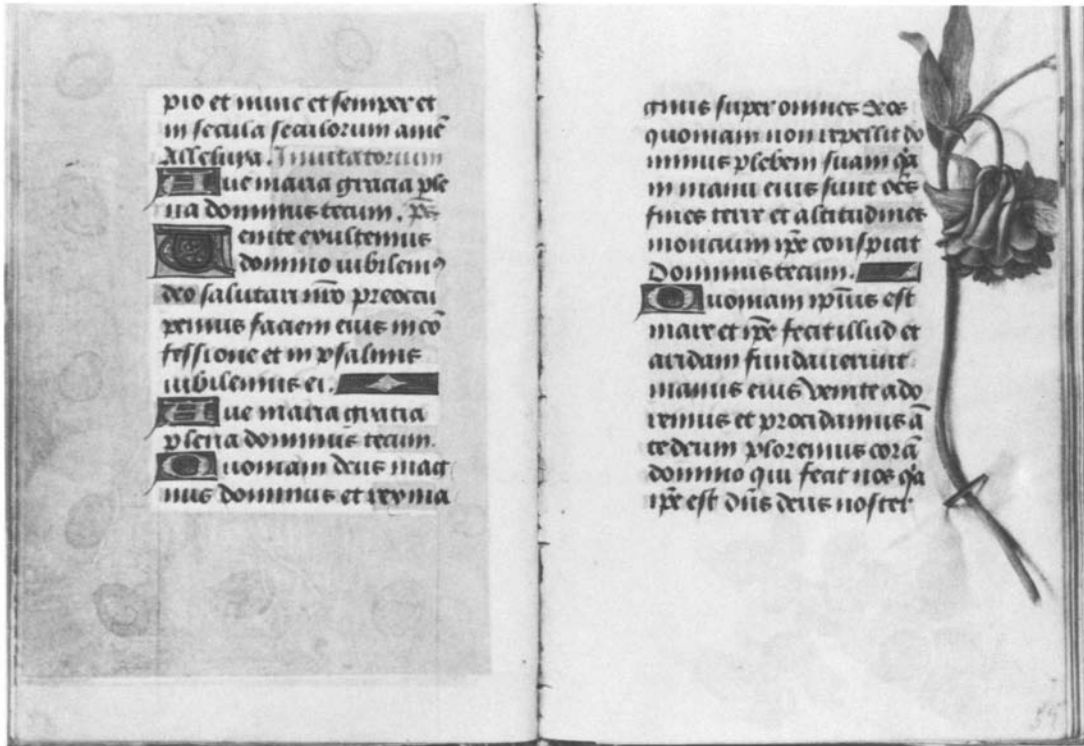 pio et nunc et semper et
in secula seculorum amē
Alleluya. Inuitatorium
Aue maria gracia ple
na dominus tecum. p̄s
Uenite exultemus
domino iubilemꝰ
deo salutari nr̄o preoccu
pemus faciem eius in cō
fessione et in psalmis
iubilemus ei.
Aue maria gracia
plena dominus tecum.
Quoniam deus mag
nus dominus et rex ma
gnus super omnes deos
quoniam non repellit do
minus plebem suam q̄a
in manu eius sunt oēs
fines terre et altitudines
moncium ip̄e conspicit
Dominus tecum.
Quoniam ip̄ius est
mare et ip̄e fecit illud et
aridam fundauerunt
manus eius Uenite ado
remus et procidamus ā
te deum ploremus corā
domino qui fecit nos q̄a
ip̄e est dn̄s deus noster